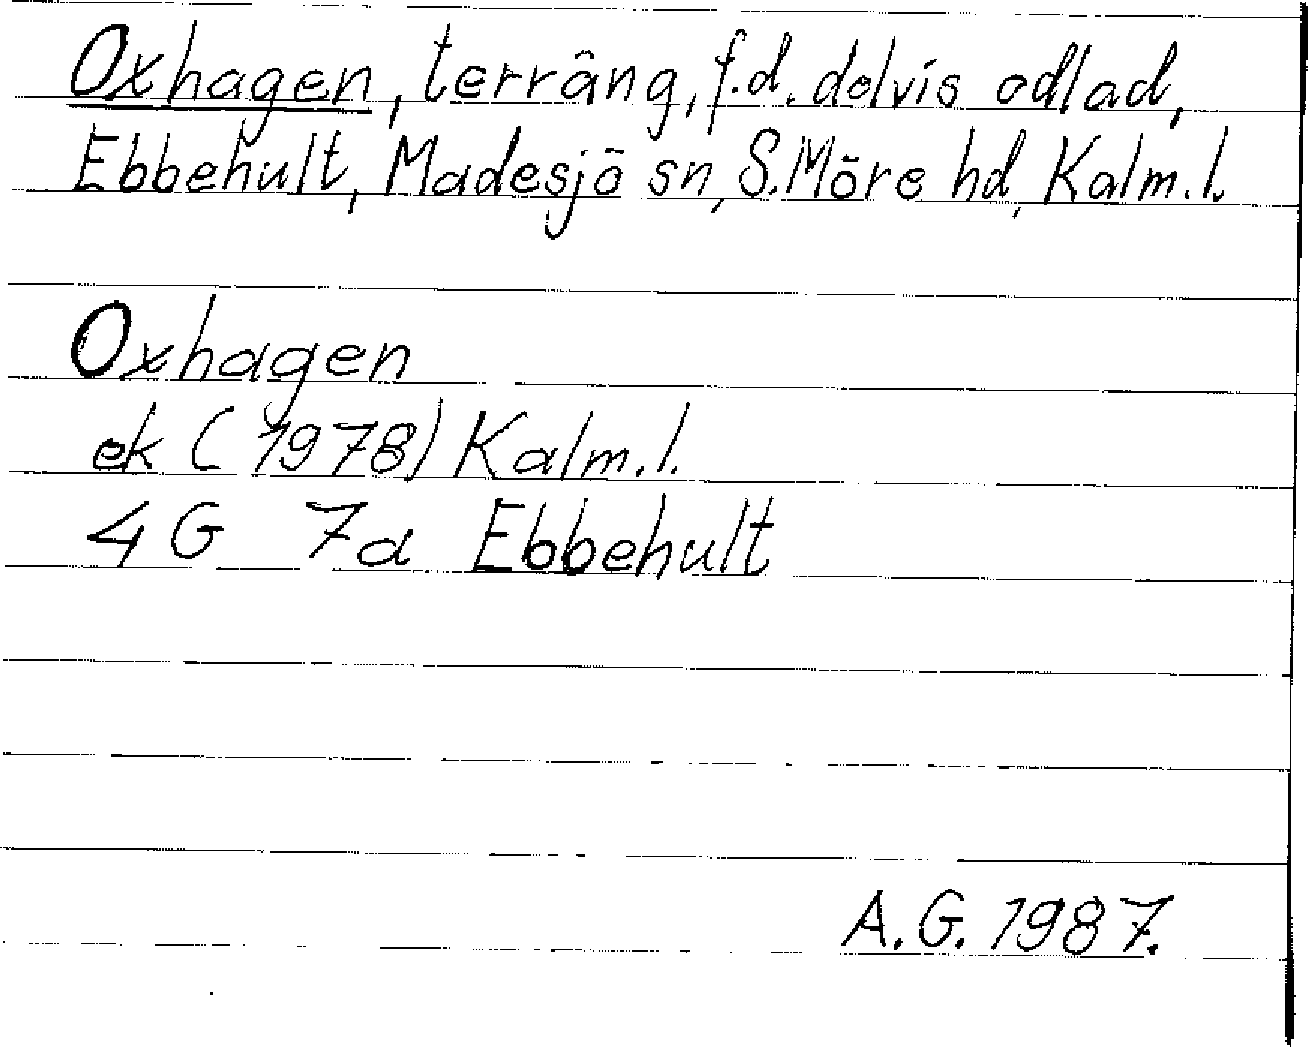 Oxhagen, terräng, f.d. delvis odlad,
Ebbehult, Madesjö sn, S. Möre hd, Kalm. l.
Oxhagen
ek (1978) Kalm. l.
4 G 7d Ebbehult
A.G. 1987.